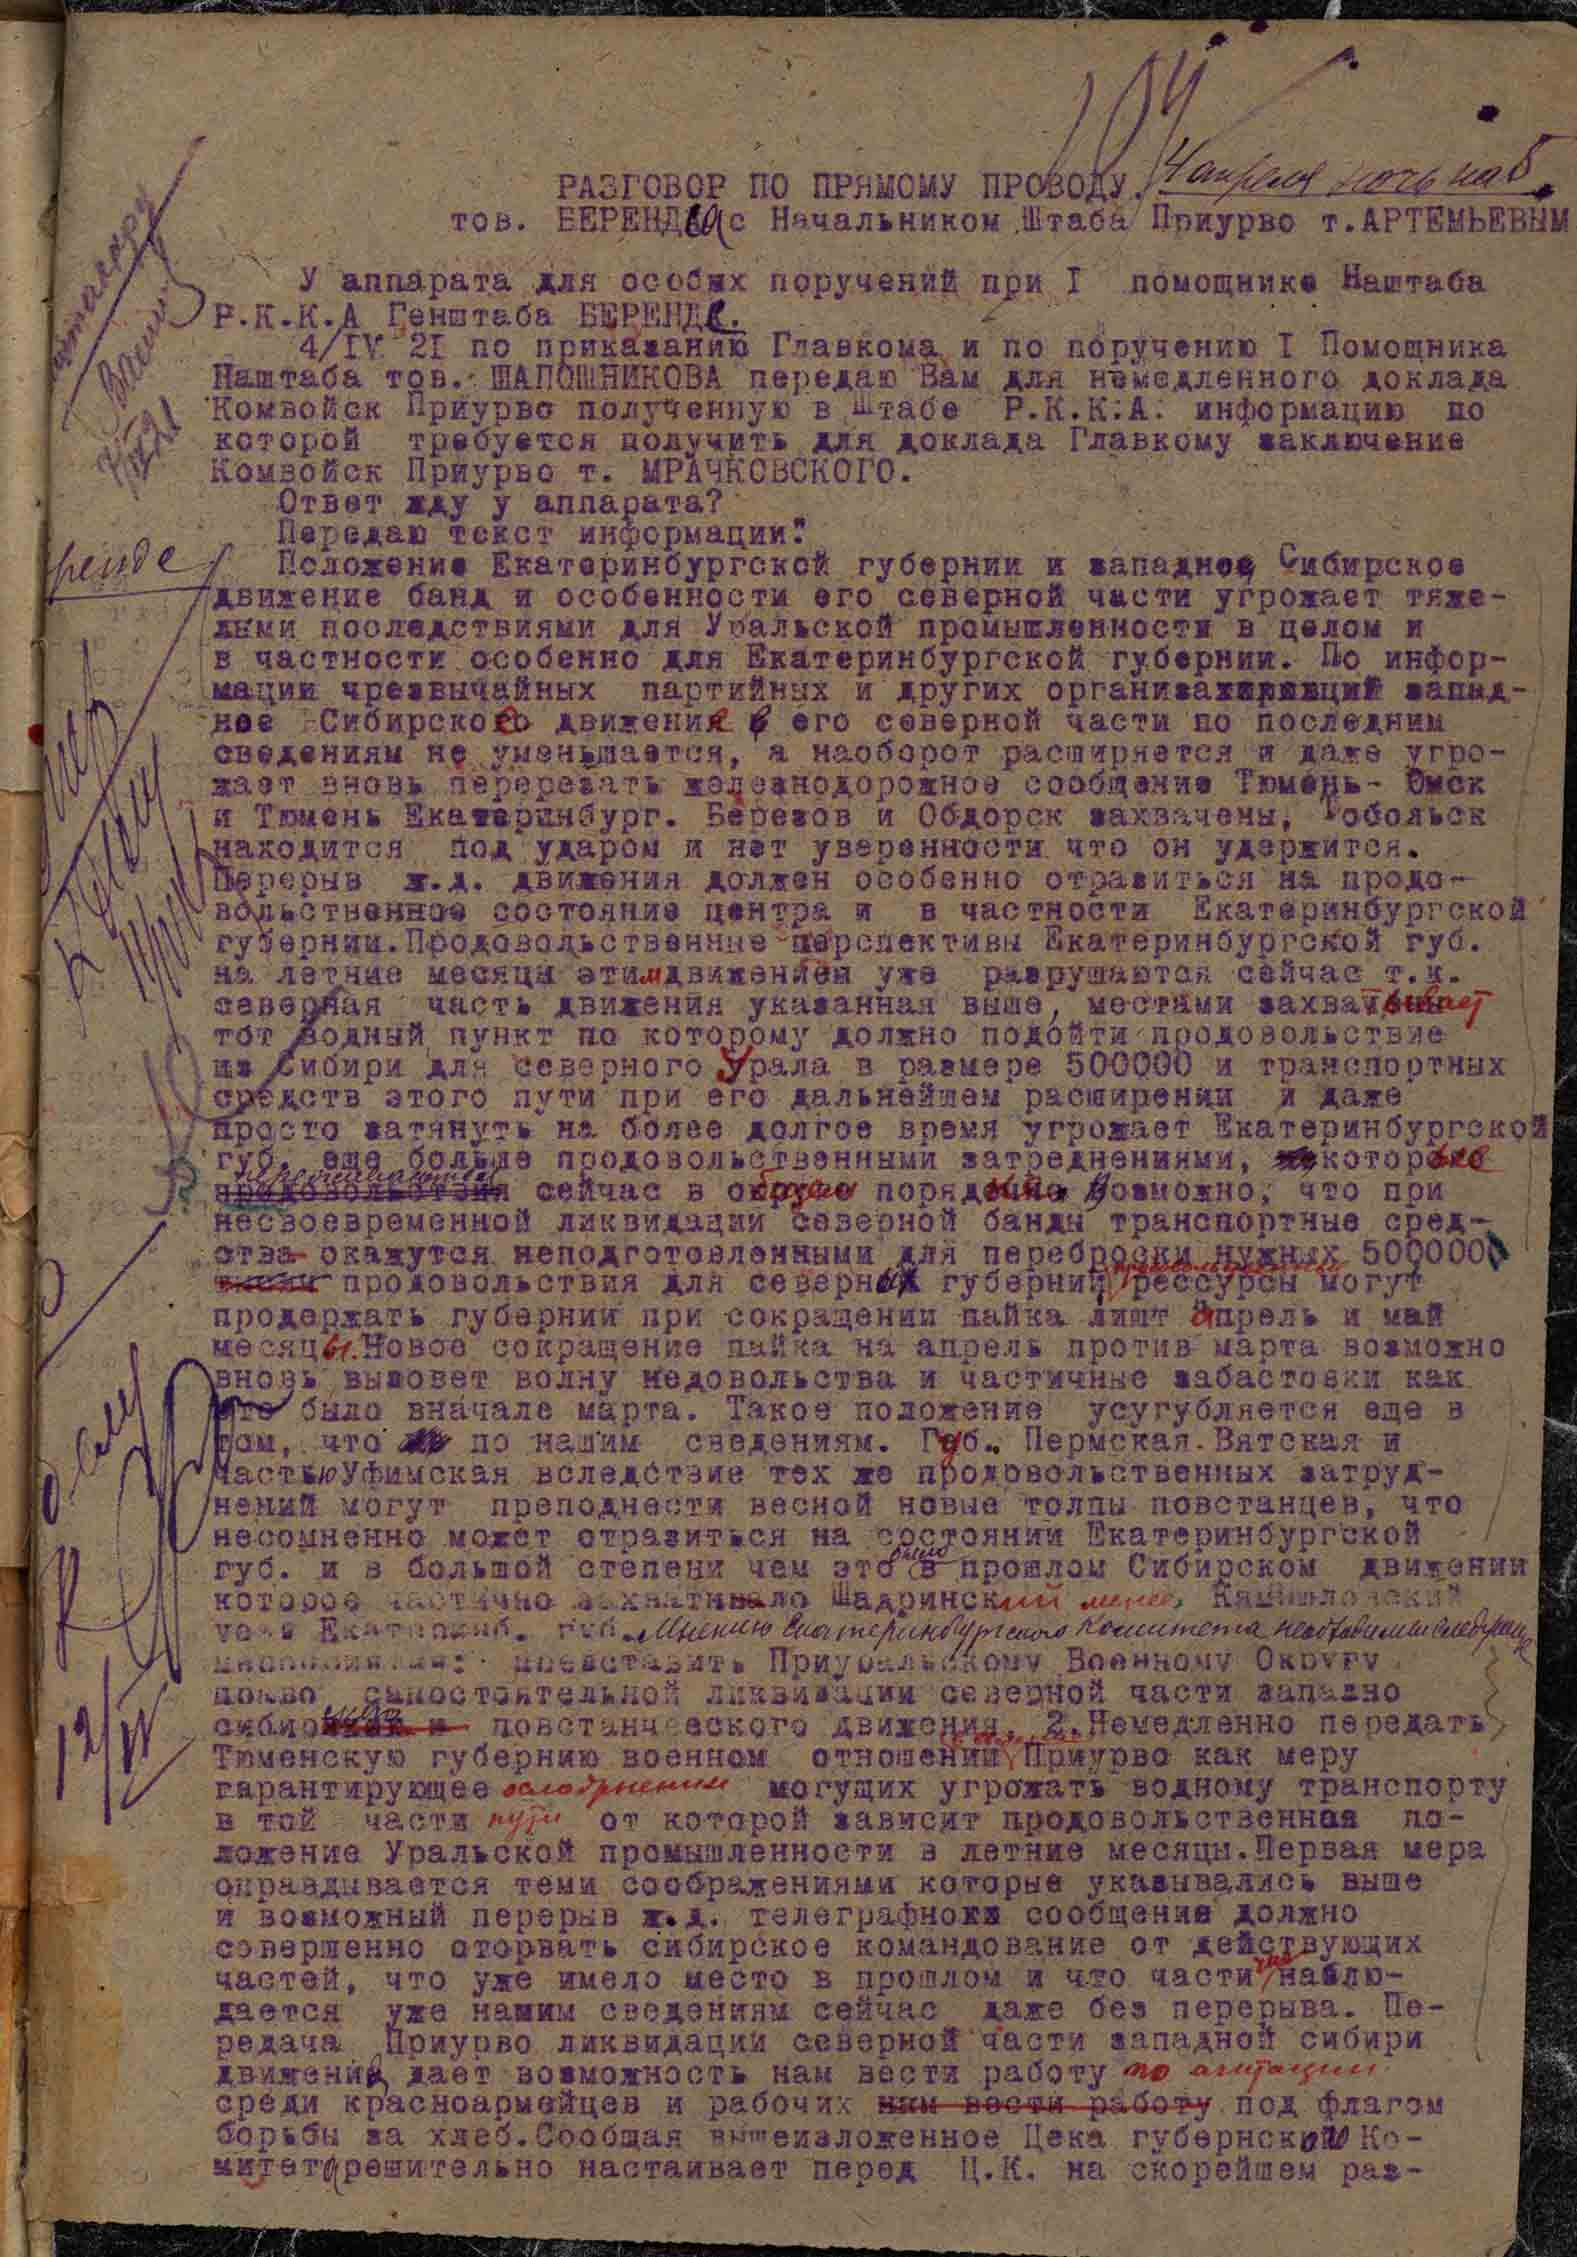 104
4 апреля ночь на 5.
РАЗГОВОР ПО ПРЯМОМУ ПРОВОДУ.
тов. БЕРЕНДса с Начальником Штаба Приурво т.АРТЕМЬЕВЫМ
У аппарата для особых поручений при I помощнике Наштаба
Р.К.К.А Генштаба БЕРЕНДС.
4/IV 21 по приказанию Главкома и по поручению I Помощника
Наштаба тов. ШАПОШНИКОВА передаю Вам для немедленного доклада
Комвойск Приурво полученную в Штабе Р.К.К.А. информацию по
которой требуется получить для доклада Главкому заключение
Комвойск Приурво т. МРАЧКОВСКОГО.
Ответ жду у аппарата?
Передаю текст информации:
Положение Екатеринбургской губернии и западное Сибирское
движение банд и особенности его северной части угрожает тяже-
лыми последствиями для Уральской промышленности в целом и
в частности особенно для Екатеринбургской губернии. По инфор-
мации чрезвычайных партийных и других организаций запад-
ное Сибирское движение в его северной части по последним
сведениям не уменьшается, а наоборот расширяется и даже угро-
жает вновь перерезать железнодорожное сообщение Тюмень- Омск
и Тюмень Екатеринбург. Березов и Обдорск захвачены, Тобольск
находится под ударом и нет уверенности что он удержится.
Перерыв ж.д. движения должен особенно отразиться на продо-
вольственное состояние центра и в частности Екатеринбургской
губернии.Продовольственные перспективы Екатеринбургской губ.
на летние месяцы этим движением уже разрушаются сейчас т.к.
северная часть движения указанная выше, местами захватывает
тот водный пункт по которому должно подойти продовольствие
из Сибири для северного Урала в размере 500000 и транспортных
средств этого пути при его дальнейшем расширении и даже
просто затянуть на более долгое время угрожает Екатеринбургской
губ. еще больше продовольственными затреднениями, которое
сейчас в порядке возможно, что при
несвоевременной ликвидации северной банды транспортные сред-
ства окажутся неподготовленными для переброски нужных 5000000
продовольствия для северных губерний рессурсы могут
продержать губернии при сокращении пайка лишт апрель и май
месяцы.Новое сокращение пайка на апрель против марта возможно
вновь вызовет волну недовольства и частичные забастовки как
это было вначале марта. Такое положение усугубляется еще в
том, что по нашим сведениям. Губ. Пермская. Вятская и
частью Уфимская вследствие тех же продовольственных затруд-
нений могут преподнести весной новые толпы повстанцев, что
несомненно может отразиться на состоянии Екатеринбургской
губ. и в большой степени чем это было в прошлом Сибирском движении
которое частично захватывало Шадринский Камышловский
уезд Екатеринб. губ. Мнению Екатеринбургского Комитета необходимы следующие
мероприятия: предоставить Приуральскому Военному Округу
право самостоятельной ликвидации северной части западно
сибирского повстанчееского движения. 2.Немедленно передать
Тюменскую губернию военном отношении Приурво как меру
гарантирующее могущих угрожать водному транспорту
в той части пути от которой зависит продовольственная по-
ложение Уральской промышленности в летние месяцы.Первая мера
оправдывается теми соображениями которые указывались выше
и возможный перерыв ж.д. телеграфное сообщение должно
совершенно оторвать сибирское командование от действующих
частей, что уже имело место в прошлом и что части наблю-
дается уже нашим сведениям сейчас даже без перерыва. Пе-
редача Приурво ликвидации северной части западной сибири
движения дает возможность нам вести работу по агитации
среди красноармейцев и рабочих ним вести работу под флагом
борьбы за хлеб.Сообщая вышеизложенное Цека губернский Ко-
митет решительно настаивает перед Ц.К. на скорейшем раз-